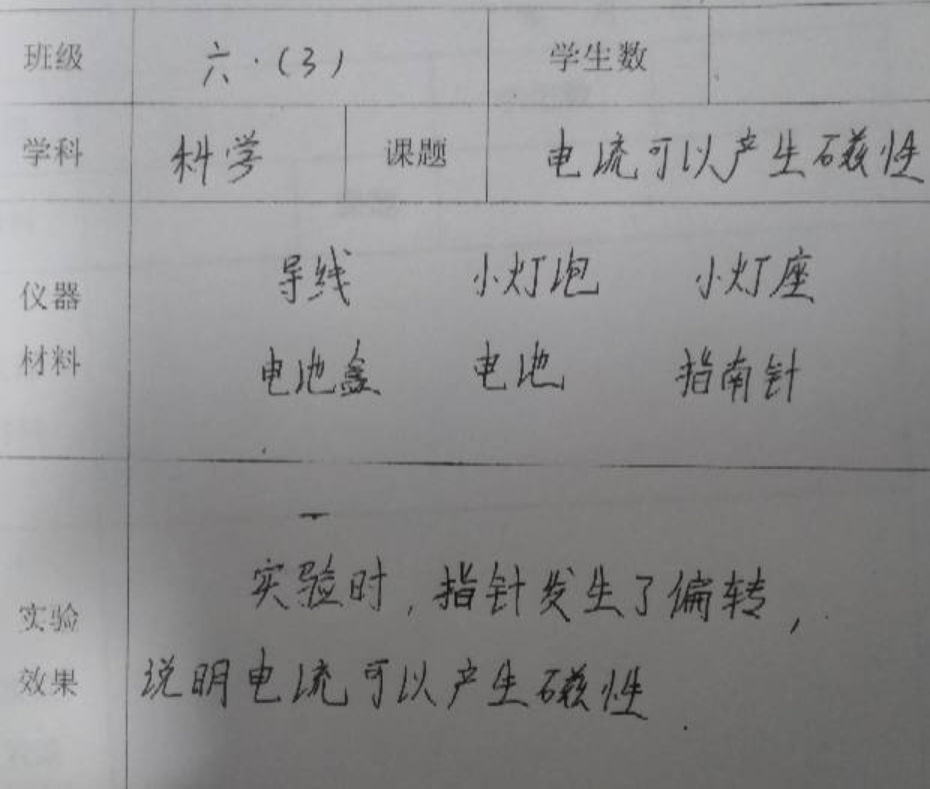 班级 六·(3) 学生数
学科 科学 课题 电流可以产生磁性
仪器 导线 小灯泡 小灯座
材料 电池盒 电池 指南针
实验 实验时,指针发生了偏转,
效果 说明电流可以产生磁性.